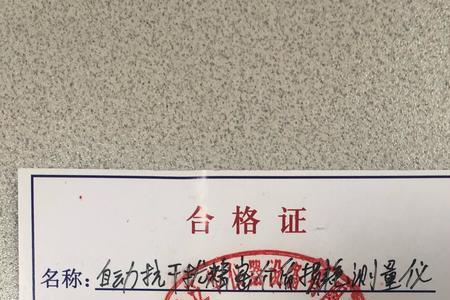 合格证
名称：自动抗干扰精密介质损耗测量仪